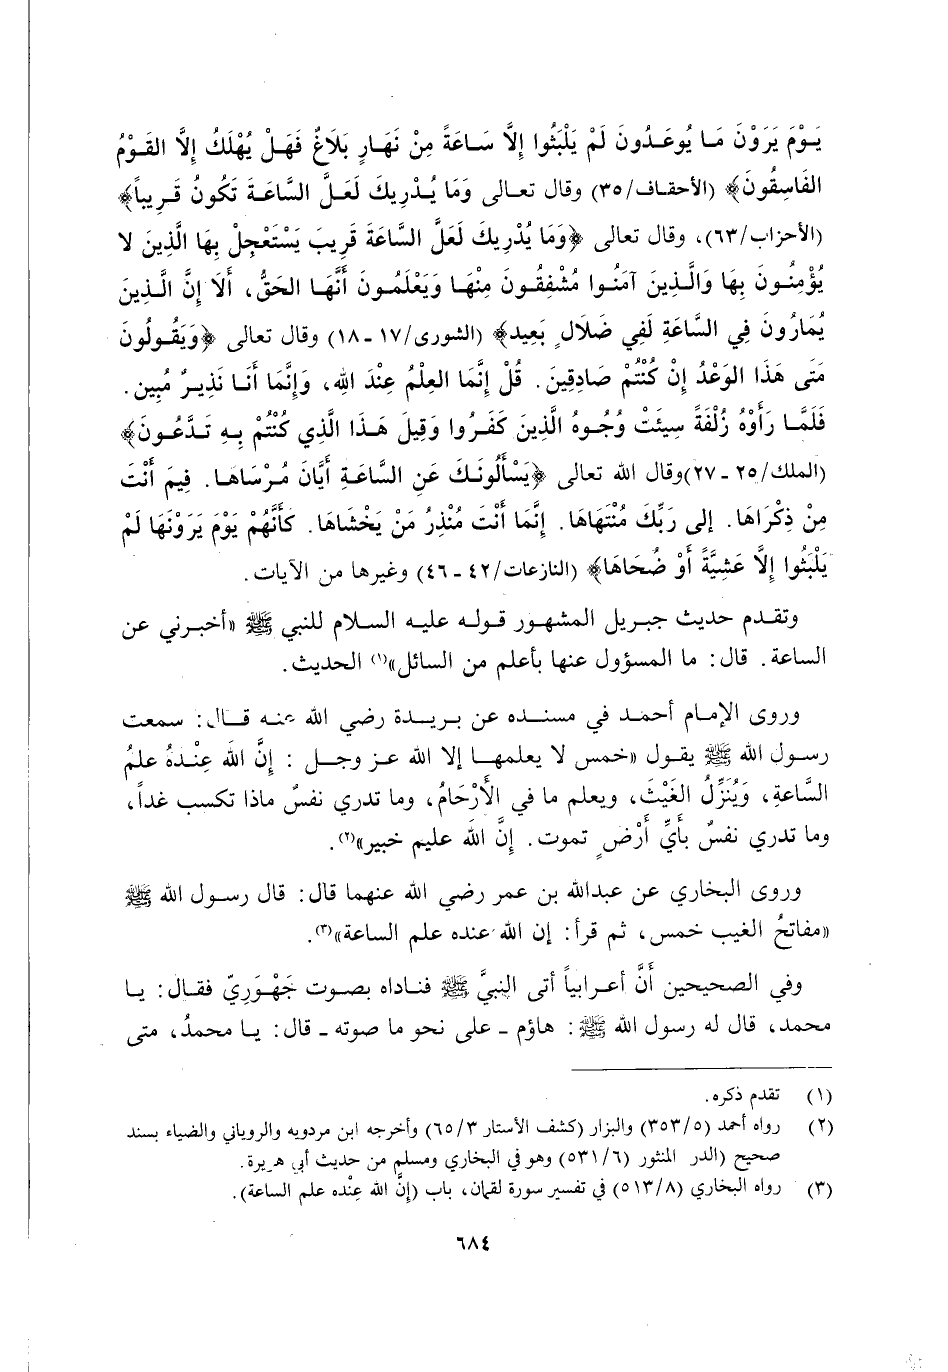 يَوْمَ يَرَوْنَ مَا يُوعَدُونَ لَمْ يَلْبَثُوا إِلَّا سَاعَةً مِنْ نَهَارٍ بَلَاغٌ فَهَلْ يُهْلَكُ إِلَّا القَوْمُ
الفَاسِقُونَ﴾ (الأحقاف/٣٥) وقال تعالى وَمَا يُدْرِيكَ لَعَلَّ السَّاعَةَ تَكُونُ قَرِيباً﴾
(الأحزاب/٦٣)، وقال تعالى ﴿وَمَا يُدْرِيكَ لَعَلَّ السَّاعَةَ قَرِيبَ يَسْتَعْجِلُ بِهَا الَّذِينَ لا
يُؤْمِنُونَ بِهَا وَالَّذِينَ آمَنُوا مُشْفِقُونَ مِنْهَا وَيَعْلَمُونَ أَنَّهَا الحَقُّ، أَلَا إِنَّ الَّذِينَ
يُمَارُونَ فِي السَّاعَةِ لَفِي ضَلَالٍ بَعِيد﴾ (الشورى/١٧ - ١٨) وقال تعالى ﴿وَيَقُولُونَ
مَتَى هَذَا الوَعْدُ إِنْ كُنْتُمْ صَادِقِينَ. قُلْ إِنَّمَا العِلْمُ عِنْدَ اللهِ، وَإِنَّمَا أَنَا نَذِيرٌ مُبِين.
فَلَمَّا رَأَوْهُ زُلْفَةً سِيئَتْ وُجُوهُ الَّذِينَ كَفَرُوا وَقِيلَ هَذَا الَّذِي كُنْتُمْ بِهِ تَدَّعُونَ﴾
(الملك/٢٥ - ٢٧)وقال الله تعالى ﴿يَسْأَلُونَكَ عَنِ السَّاعَةِ أَيَّانَ مُرْسَاهَا. فِيمَ أَنْتَ
مِنْ ذِكْرَاهَا. إلى رَبِّكَ مُنْتَهَاهَا. إِنَّمَا أَنْتَ مُنْذِرُ مَنْ يَخْشَاهَا. كَأَنَّهُمْ يَوْمَ يَرَوْنَهَا لَمْ
يَلْبَثُوا إِلَّا عَشِيَّةً أَوْ ضُحَاهَا﴾ (النازعات/٤٢ - ٤٦) وغيرها من الآيات.
وتقدم حديث جبريل المشهور قوله عليه السلام للنبي ﷺ «أخبرني عن
الساعة. قال: ما المسؤول عنها بأعلم من السائل»(١) الحديث.
وروى الإمام أحمد في مسنده عن بريدة رضي الله عنه قال: سمعت
رسول الله ﷺ يقول «خمس لا يعلمها إلا الله عز وجل: إِنَّ اللَّهَ عِنْدَهُ علمُ
السَّاعةِ، وَيُنَزِّلُ الغَيْثَ، ويعلم ما في الأَرْحَامُ، وما تدري نفسٌ ماذا تكسب غداً،
وما تدري نفسٌ بأَيِّ أَرْضٍ تموت. إنَّ اللهَ عليم خبير»(٢).
وروى البخاري عن عبدالله بن عمر رضي الله عنهما قال: قال رسول الله ﷺ
«مفاتحُ الغيب خمس، ثم قرأ: إن الله عنده علم الساعة»(٣).
وفي الصحيحين أَنَّ أعرابياً أتى النبيَّ ﷺ فناداه بصوت جَهْوَرِيّ فقال: يا
محمد، قال له رسول الله ﷺ: هاؤم - على نحو ما صوته - قال: يا محمدُ، متى
(١) تقدم ذكره.
(٢) رواه أحمد (٣٥٣/٥) والبزار (كشف الأستار ٦٥/٣) وأخرجه ابن مردويه والروياني والضياء بسند
صحيح (الدر المنثور ٥٣١/٦) وهو في البخاري ومسلم من حديث أبي هريرة.
(٣) رواه البخاري (٥١٣/٨) في تفسير سورة لقمان، باب (إنَّ الله عِنْده علم الساعة).
٦٨٤